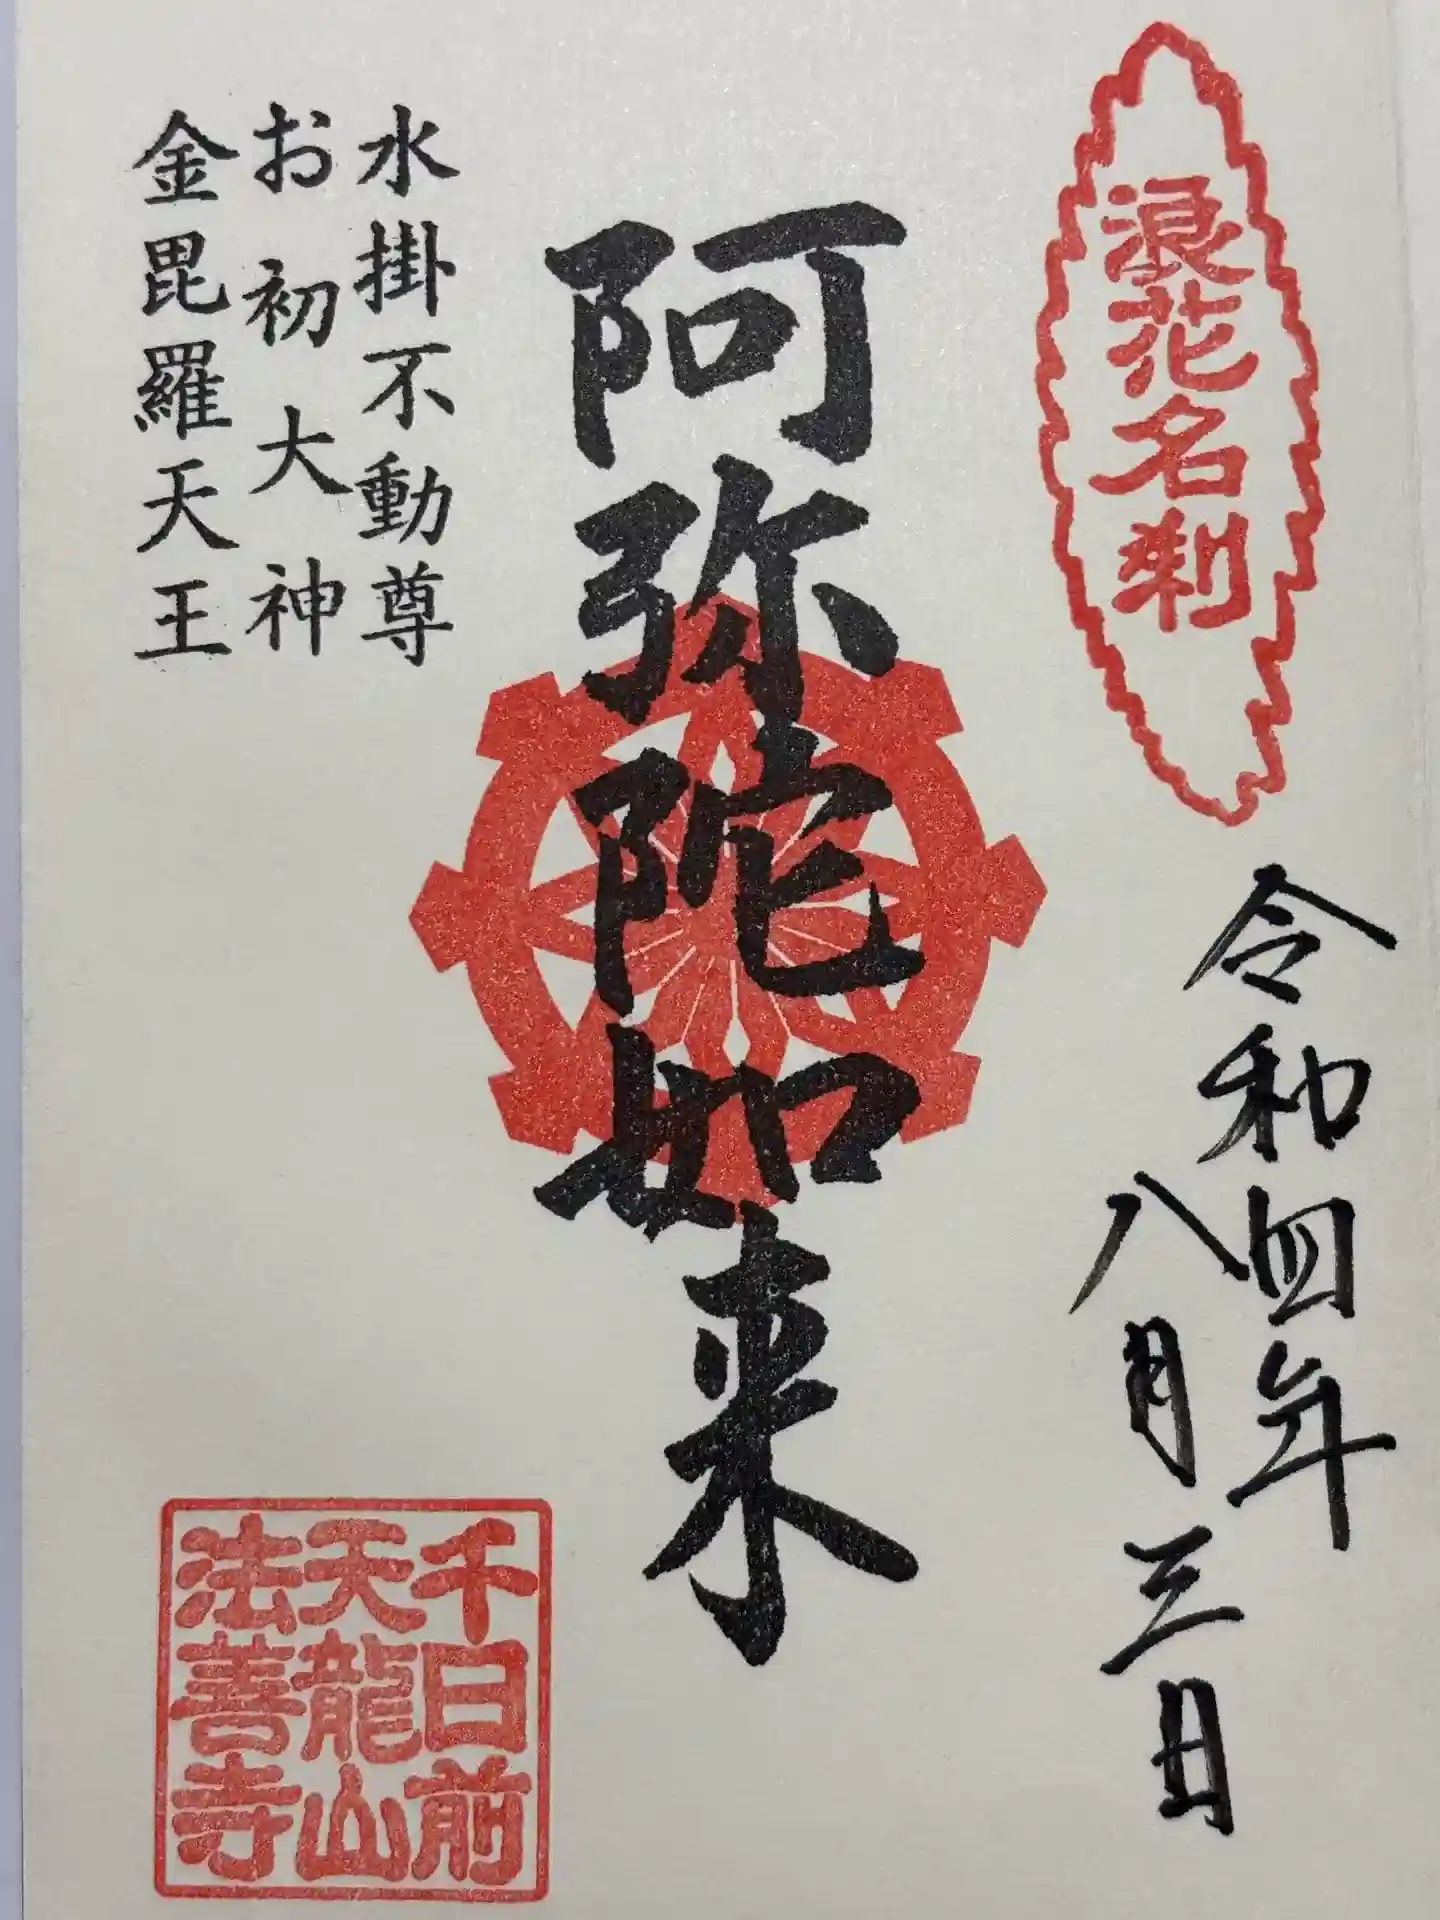 浪花名刹
令和四年
八月三日
阿弥陀如来
水掛不動尊
お初大神
金毘羅天王
千日前
天龍山
法善寺